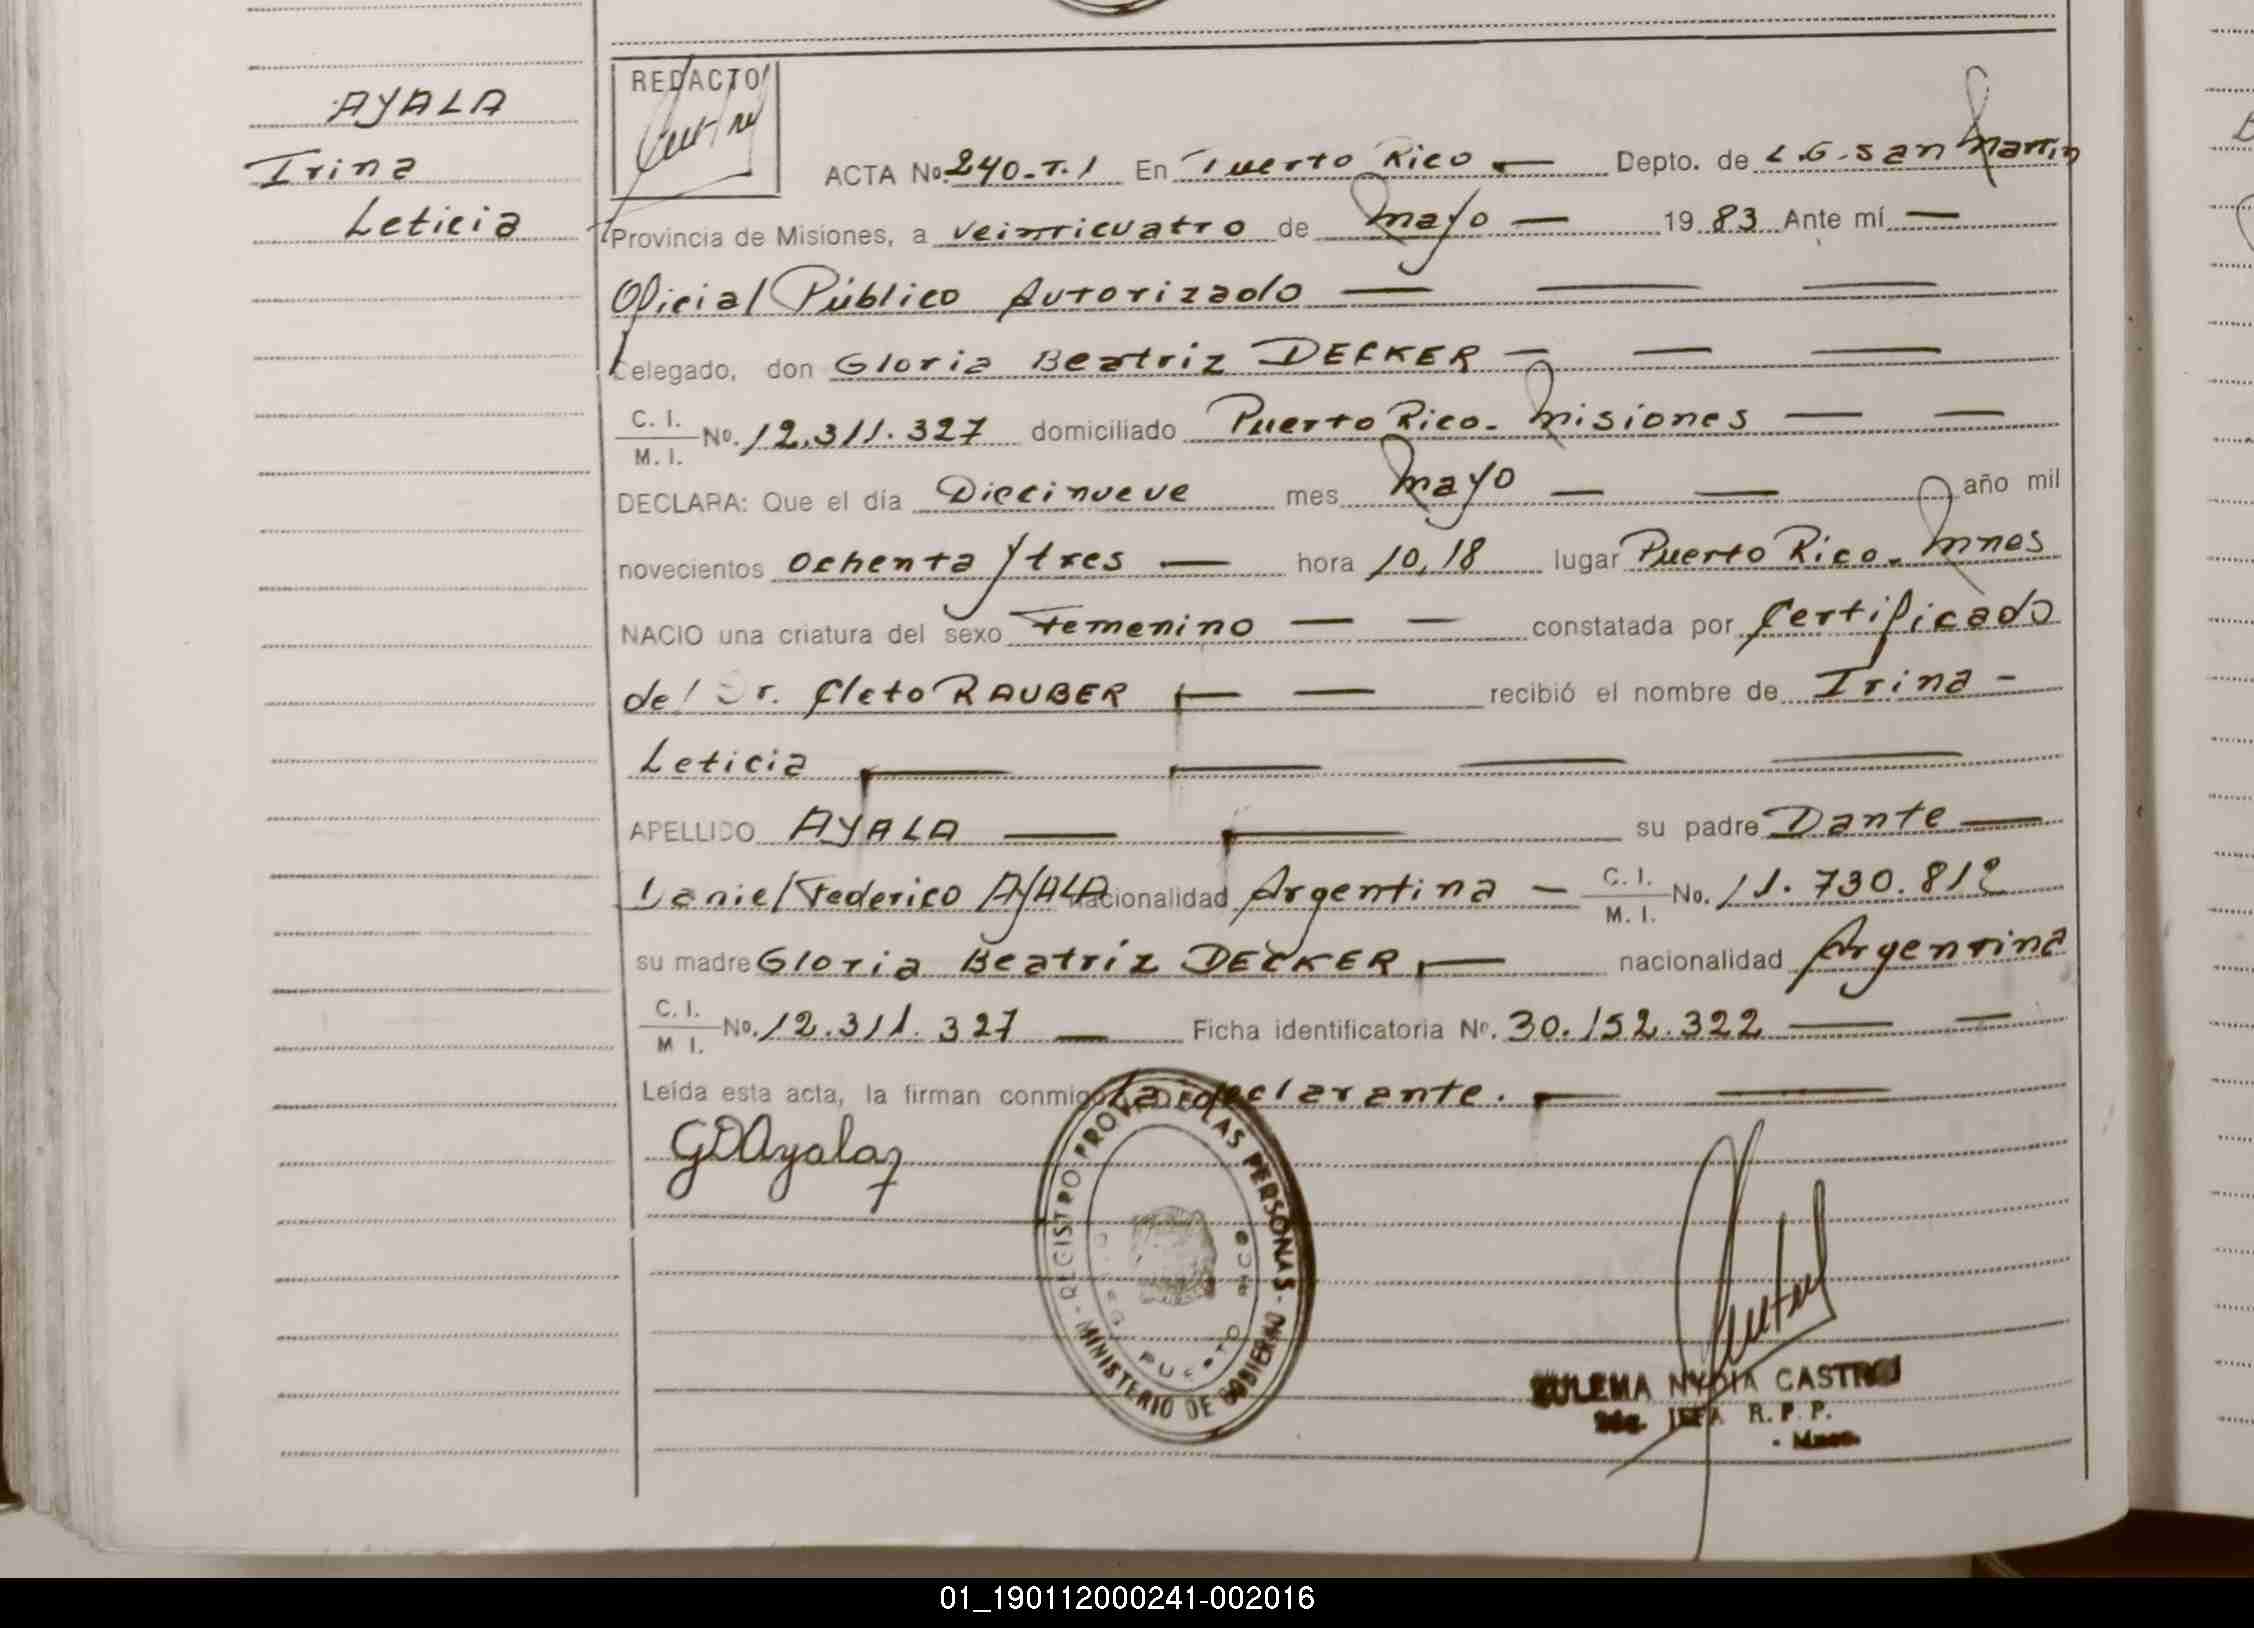 AYALA
Irina
Leticia
REDACTO
ACTA No. 240-T.1 En Puerto Rico — Depto. de L.G. San Martin
Provincia de Misiones, a veinticuatro de mayo — 19 83 Ante mí —
Oficial Público Autorizado — — —
Delegado, don Gloria Beatriz DECKER — — —
C. I.
M. I. No. 12.311.327 domiciliado Puerto Rico - Misiones — —
DECLARA: Que el día Diecinueve mes mayo — — año mil
novecientos ochenta y tres — hora 10,18 lugar Puerto Rico - Mnes
NACIO una criatura del sexo Femenino — — constatada por Certificado
del Dr. Cleto RAUBER — — recibió el nombre de Irina -
Leticia — — — —
APELLIDO AYALA — — su padre Dante —
Daniel Federico AYALA nacionalidad Argentina — C. I.
M. I. No. 11.730.812
su madre Gloria Beatriz DECKER — nacionalidad Argentina
C. I.
M I. No. 12.311.327 — Ficha identificatoria No. 30.152.322 — —
Leída esta acta, la firman conmigo la declarante. — —
GDAyala
REGISTRO PROV. DE LAS PERSONAS
- MINISTERIO DE GOBIERNO -
PUERTO RICO
ZULEMA NYDIA CASTRO
JEFA R. P. P.
- Mnes.
01_190112000241-002016